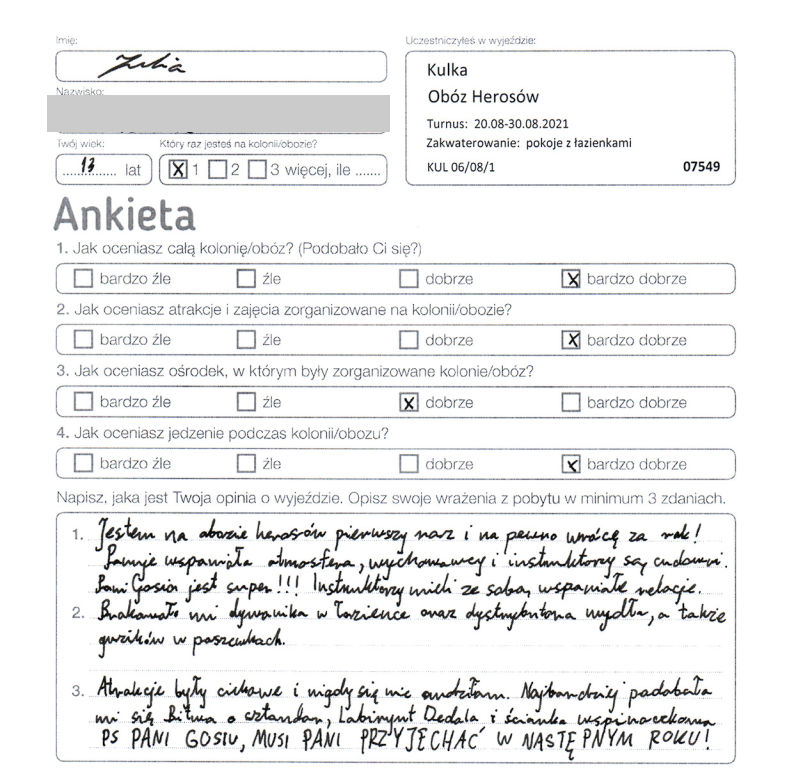 Imię:
Julia
Uczestniczyłeś w wyjeździe:
Kulka
Obóz Herosów
Turnus: 20.08-30.08.2021
Zakwaterowanie: pokoje z łazienkami
KUL 06/08/1 07549
Nazwisko:
Twój wiek:
13 lat
Który raz jesteś na kolonii/obozie?
X 1 2 3 więcej, ile .......
Ankieta
1. Jak oceniasz całą kolonię/obóz? (Podobało Ci się?)
bardzo źle źle dobrze X bardzo dobrze
2. Jak oceniasz atrakcje i zajęcia zorganizowane na kolonii/obozie?
bardzo źle źle dobrze X bardzo dobrze
3. Jak oceniasz ośrodek, w którym były zorganizowane kolonie/obóz?
bardzo źle źle X dobrze bardzo dobrze
4. Jak oceniasz jedzenie podczas kolonii/obozu?
bardzo źle źle dobrze X bardzo dobrze
Napisz, jaka jest Twoja opinia o wyjeździe. Opisz swoje wrażenia z pobytu w minimum 3 zdaniach.
1. Jestem na obozie herosów pierwszy raz i na pewno wrócę za rok!
Panuje wspaniała atmosfera, wychowawcy i instruktorzy są cudowni.
Pani Gosia jest super!!! Instruktorzy mieli ze sobą wspaniałe relacje.
2. Brakowało mi dywanika w łazience oraz dystrybutora mydła, a także
guzików w poszewkach.
3. Atrakcje były ciekawe i nigdy się nie nudziłam. Najbardziej podobała
mi się Bitwa o sztandar, Labirynt Dedala i ścianka wspinaczkowa
PS PANI GOSIU, MUSI PANI PRZYJECHAĆ W NASTĘPNYM ROKU!